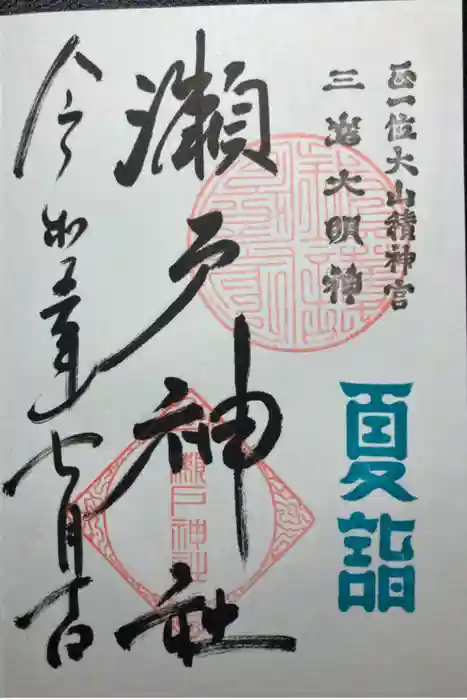 正一位大山積神宮
三嶌大明神
夏詣
瀬戸神社
令和五年七月吉日
瀬戸神社